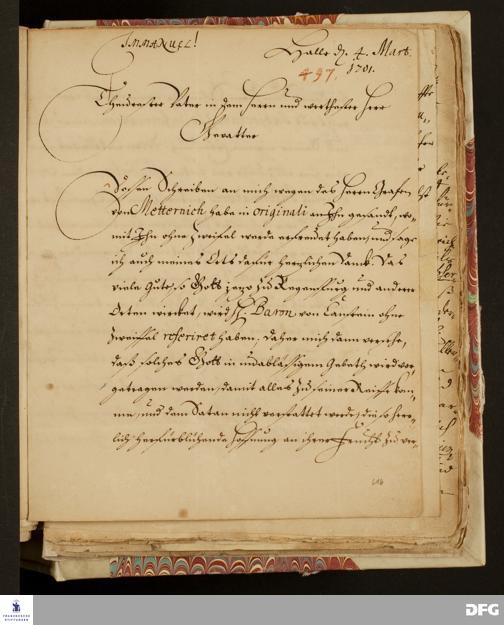 IMMANUEL!
Halle d. 4. Mart.
1701.
497.
Theürester Vater in dem Herrn und werthester Herr
Gevatter
Dessen Schreiben an mich wegen des Herrn Grafen
von Metternich habe in originali an Ihn gesandt, wo-
mit Ihn ohne Zweifel werde erfreuet haben, und sage
ich auch meines Orts dafür hertzlichen Danck. Das
viele Gute, so Gott jetzo zu Regenspurg und anderer
Orten wircket, wird H. Baron von Canstein ohne
Zweiffel referiret haben, daher mich denn versehe,
daß solches Gott in unabläßigem Gebeth wird vor-
getragen werden, damit alles zu seiner Reiffe kom-
me, und dem Satan nicht verstattet werde, diese herr-
lich herfürblickende Hoffnung an ihrer Frucht zu ver-
FRANCKESCHE
STIFTUNGEN
DFG